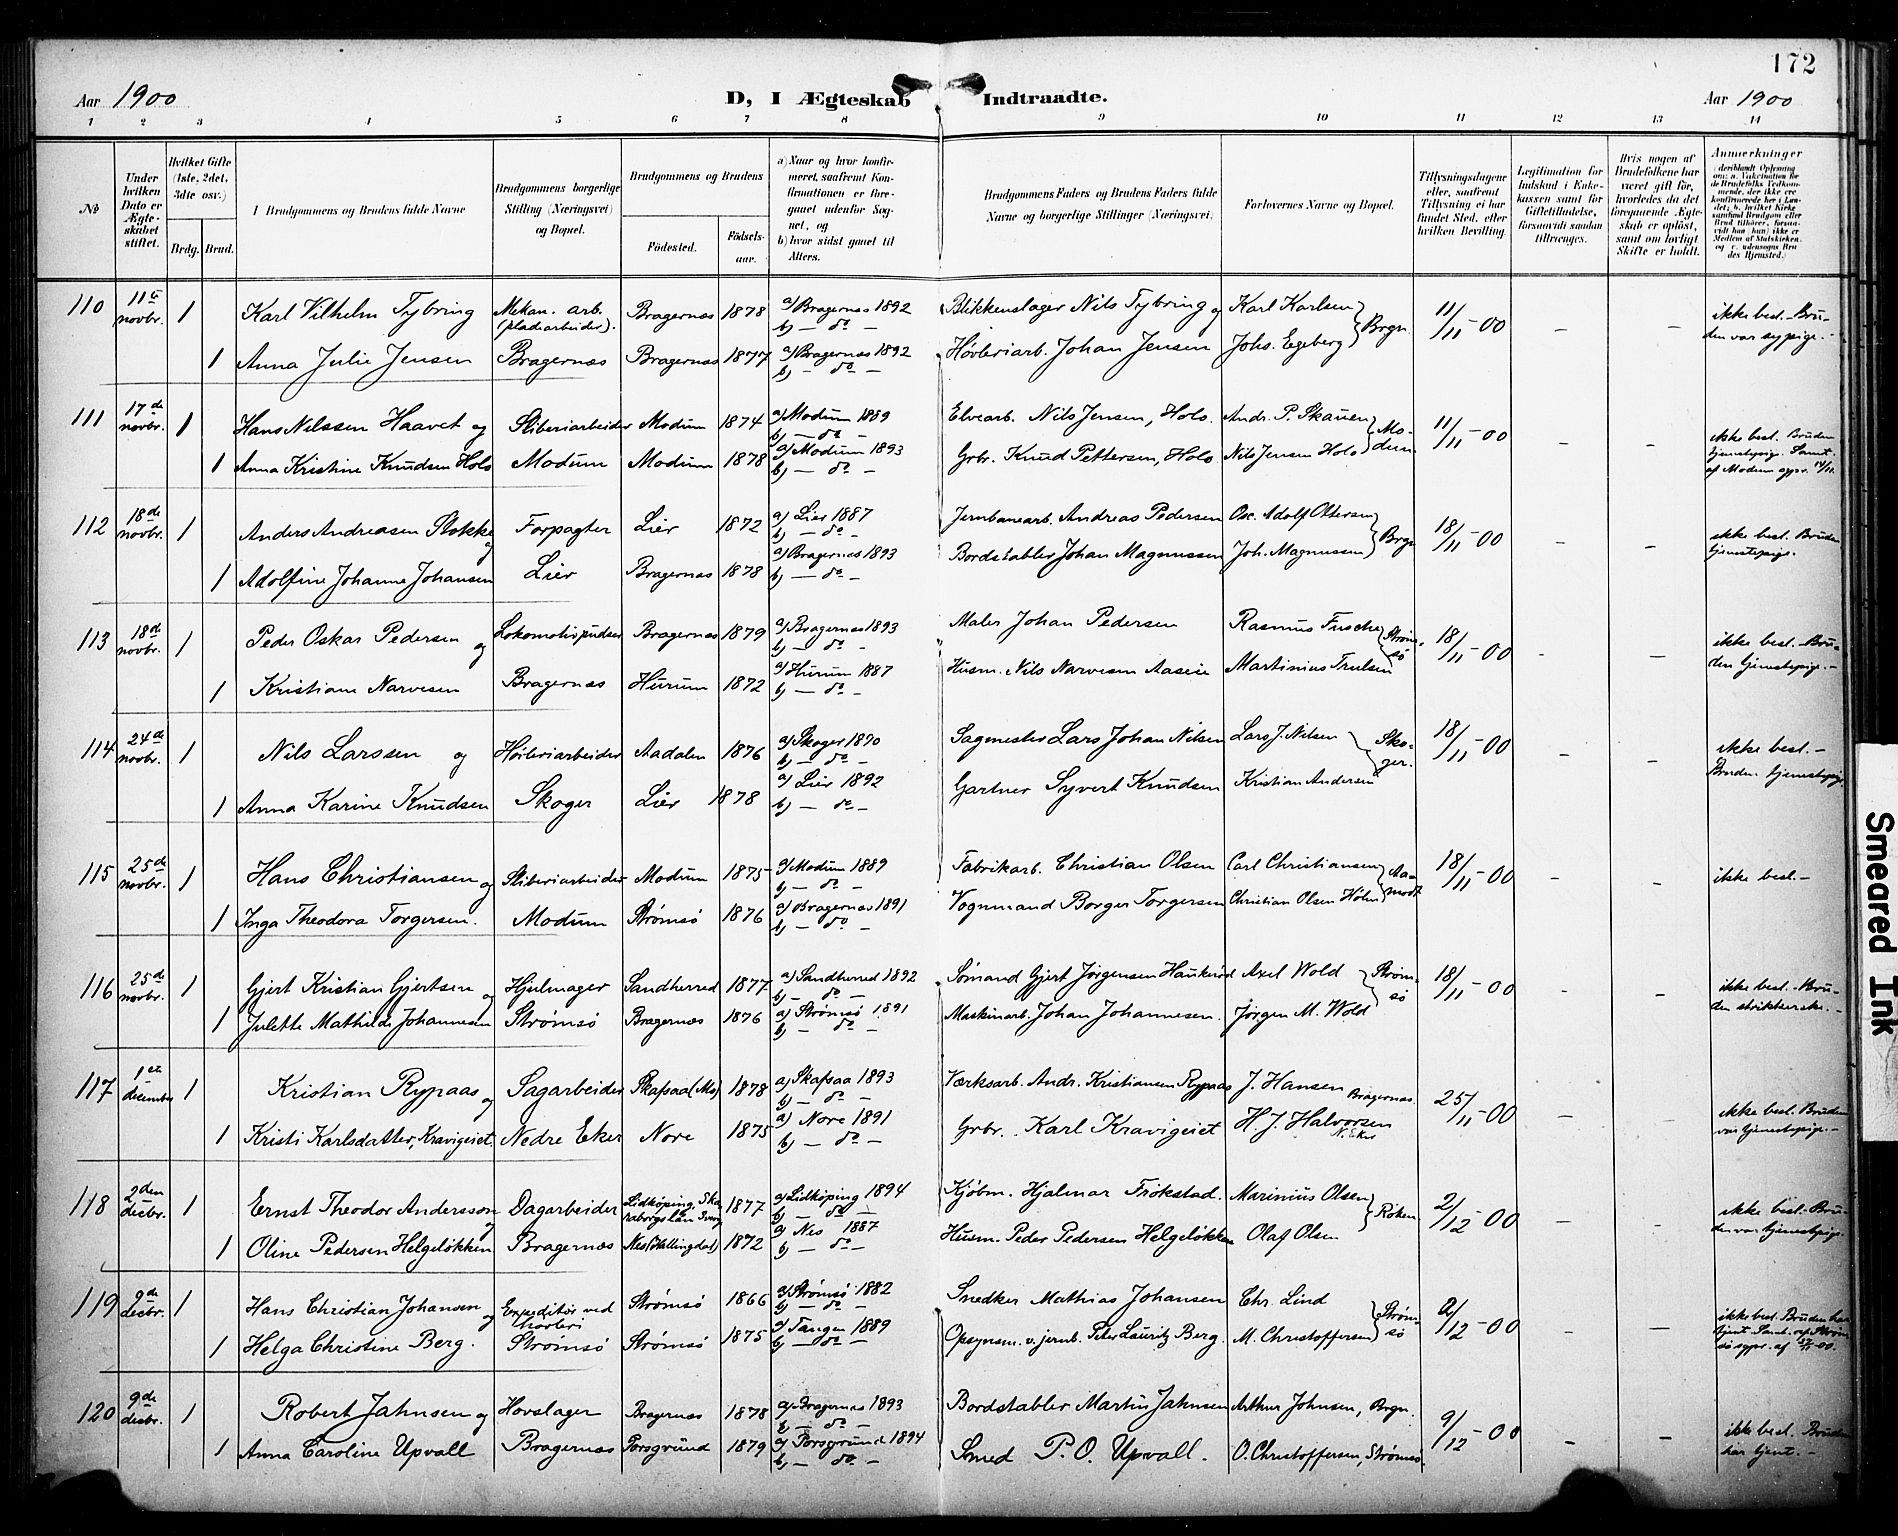 172
Aar 1900 D, I Ægteskab Indtraadte. Aar 1900
1 2 3 4 5 6 7 8 9 10 11 12 13 14
№
Under hvilken Dato er Ægteskabet stiftet.
Hvilket Gifte (1ste, 2det, 3die osv.)
Brdg. Brud.
Brudgommens og Brudens fulde Navne
Brudgommens borgerlige Stilling (Næringsvei) og Bopæl.
Brudgommens og Brudens
Födested. Födsels-aar.
a) Naar og hvor konfirmeret, saafremt Konfirmationen er foregaaet udenfor Sognet, og
b) hvor sidst gaaet til Alters.
Brudgommens Faders og Brudens Faders fulde Navne og borgerlige Stillinger (Næringsvei)
Forlovernes Navne og Bopæl.
Tillysningsdagene eller, saafremt Tillysning ei har fundet Sted, efter hvilken Bevilling.
Legitimation for Indskud i Enkekassen samt for Giftetilladelse, forsaavidt saadan tiltrænges.
Hvis nogen af Brudefolkene har været gift för, hvorledes da det foregaaende Ægteskab er oplöst, samt om lovligt Skifte er holdt.
Anmerkninger
110 11te novbr. 1 Karl Vilhelm Tybring Mekan. arb. (pladearbeider). Bragernæs 1878 a) Bragernæs 1892 b) — do — Blikkenslager Nils Tybring og Karl Karlsen Brgn. 11/11-00 ikke besl. - Bru-
1 Anna Julie Jensen Bragernæs Bragernæs 1877 a) Bragernæs 1892 b) — do — Høvleriarb. Johan Jensen Johs. Egeberg den var sypige.
111 17de novbr. 1 Hans Nilssen Haavet og Sliberiarbeider Modum 1874 a) Modum 1889 b) — do — Elvearb. Nils Jensen, Hols. Andr. P. Skauen Modum 11/11-00 ikke besl. Bruden
1 Anna Kristine Knudsen Hols Modum Modum 1878 a) Modum 1893 b) — do — Grbr. Knud Pettersen, Hols Nils Jensen Hols tjenestepige. Samt. af Modum sgpr. 14/11.
112 18de novbr. 1 Anders Andreasen Stokke og Forpagter Lier 1872 a) Lier 1887 b) — do — Jernbanearb. Andreas Pedersen Osc. Adolf Ottersen Brgn 18/11-00 ikke besl. Bruden
1 Adolfine Johanne Johansen Lier Bragernæs 1878 a) Bragernæs 1893 b) — do — Bordstabler Johan Magnussen Joh. Magnussen tjenestepige.
113 18de novbr. 1 Peder Oskar Pedersen og Lokomotivpudser Bragernæs 1879 a) Bragernæs 1893 b) — do — Maler Johan Pedersen Rasmus Fusche Strømsø 18/11-00 ikke besl. - Bru-
1 Kristiane Narvesen Bragernæs Hurum 1872 a) Hurum 1887 b) — do — Husm. Nils Narvesen Aaseie Martinius Trulsen den tjenestepige. -
114 24de novbr. 1 Nils Larssen og Høvleriarbeider Aadalen 1876 a) Skoger 1890 b) — do — Sagmester Lars Johan Nilsen Lars J. Nilsen Skoger. 18/11-00 ikke besl. -
1 Anna Karine Knudsen Skoger Lier 1878 a) Lier 1892 b) — do — Gartner Syvert Knudsen Kristian Andersen Bruden tjenestepige
115 25de novbr. 1 Hans Christiansen og Sliberiarbeider Modum 1875 a) Modum 1889 b) — do — Fabrikarb. Christian Olsen Carl Christiansen Aamodt 18/11-00 ikke besl. -
1 Inga Theodora Torgersen. Modum Strømsø 1876 a) Bragernæs 1891 b) — do Vognmand Borger Torgersen Christian Olsen Holm
116 25de novbr. 1 Gjert Kristian Gjertsen og Hjulmager Sandherred 1877 a) Sandherred 1892 b) — do — Sømand Gjert Jørgensen Haukerød Axel Wold Strømsø 18/11-00 ikke besl. - Bru-
1 Julette Mathilde Johannesen Strømsø Bragernæs 1876 a) Strømsø 1891 b) — do — Maskinarb. Johan Johannesen. Jørgen M. Wold den strikkerske. -
117 1ste december 1 Kristian Rypaas og Sagarbeider Skafsaa (Mo) 1878 a) Skafsaa 1893 b) — do — Værksarb. Andr. Kristiansen Rypaas J. Hansen Bragernæs. 25/11-00 ikke besl. Bruden
1 Kristi Karlsdatter, Kravigeiet Nedre Eker Nore 1875 a) Nore 1891 b) — do — Grbr. Karl Kravigeiet H. J. Halvorsen N. Eker var tjenestepige. -
118 2den decbr. 1 Ernst Theodor Andersson og Dagarbeider Lidköping, Skaraborgs län Sverg 1877 a) Lidköping 1894 b) — do — Kjøbm. Hjalmar Frökstad. Marinius Olsen Røken 2/12-00 ikke besl. - Bru-
1 Oline Pedersen Helgeløkken Bragernæs Næs (Hallingdal) 1872 a) Nes 1887 b) — do — Husm. Peder Pedersen Helgeløkken Olaf Olsen den var tjenestepige.
119 9de decbr. 1 Hans Christian Johansen og Expeditør ved Strømsø 1866 a) Strømsø 1882 b) — do — Snedker Mathias Johansen Chr. Lind Strømsø 9/12-00 ikke besl. Bruden har
1 Helga Christine Berg. Strømsø Strømsø 1875 a) Tangen 1889 b) — do — Opsynsm. v. jernb. Peter Lauritz Berg. M. Christoffersen
120 9de decbr. 1 Robert Jahnsen og Hovslager Bragernæs 1878 a) Bragernæs 1893 b) — do — Bordstabler Martin Jahnsen Arthur Johnsen, Brgn. 9/12-00 ikke besl. Bruden
1 Anna Caroline Upvall Bragernæs Porsgrund 1879 a) Porsgrund 1894 b) — do. — Smed P. O. Upvall. O. Christoffersen, Strømsø har tjent. -
Smeared Ink